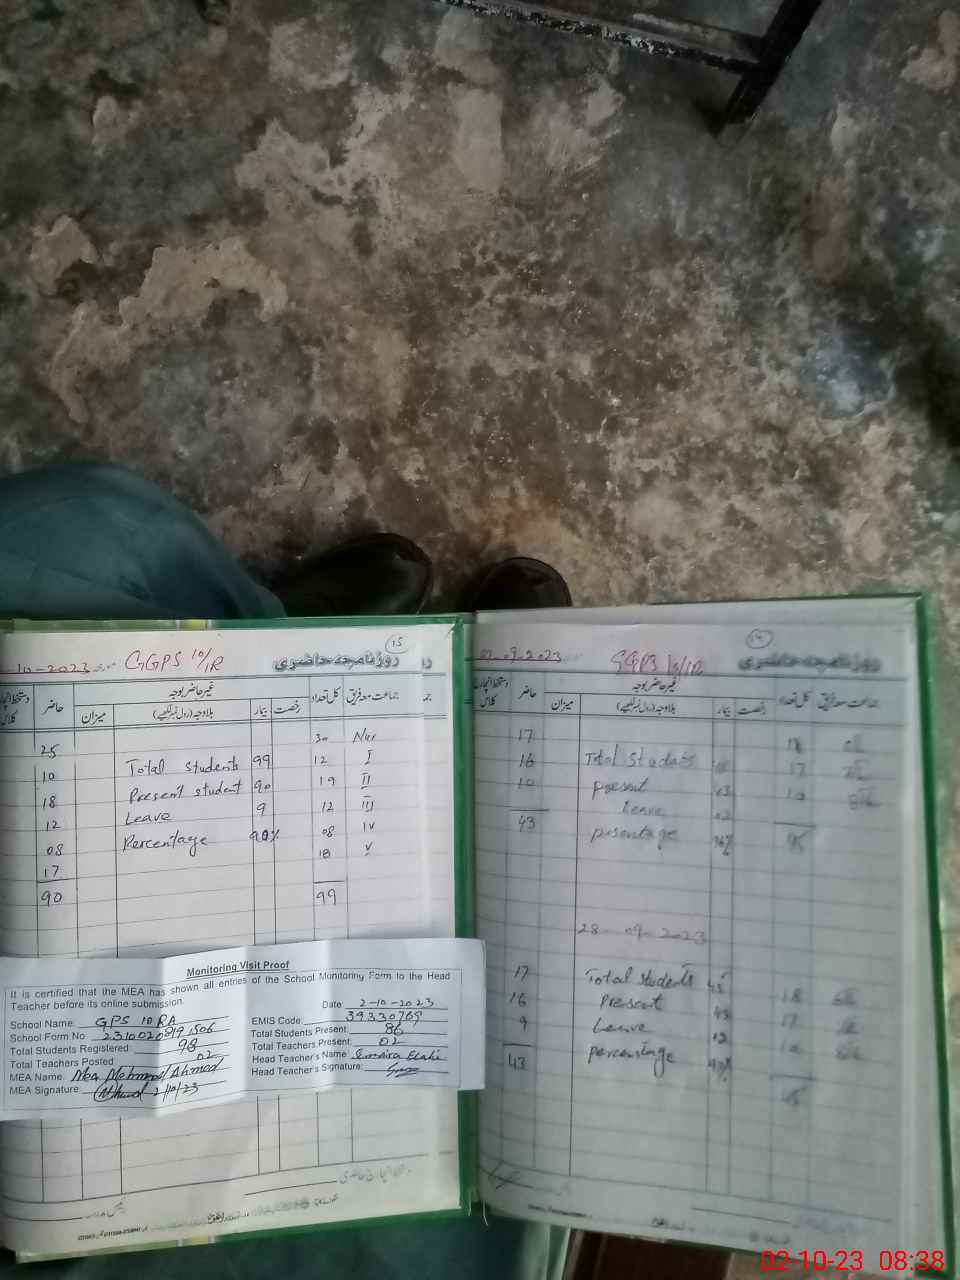 -10-2023 GGPS 10/1R روزنامچہ حاضری 15
دستخط انچارج کلاس حاضر غیر حاضر بوجہ کل تعداد جماعت معہ فریق
میزان بلاوجہ (رول نمبر لکھیے) بیمار رخصت
30 Nur
25 Total Students 99 12 I
10 Present student 90 19 II
18 Leave 9 12 III
12 Percentage 08 IV
08 18 V
17
90 99
Monitoring Visit Proof
It is certified that the MEA has shown all entries of the School Monitoring Form to the Head
Teacher before its online submission.
Date 2-10-2023
School Name: GPS 10 RA
EMIS Code: 39330769
School Form No
Total Students Present: 86
Total Students Registered: 98
Total Teachers Present: 02
Total Teachers Posted 02
Head Teacher's Name
MEA Name: Mea Mohmmad Ahmed
Head Teacher's Signature:
MEA Signature: 2/10/23
09-2023 GGPS 10/1R روزنامچہ حاضری 14
دستخط انچارج کلاس حاضر غیر حاضر بوجہ کل تعداد جماعت معہ فریق
میزان بلاوجہ (رول نمبر لکھیے) بیمار رخصت
17 18
16 Total Students 17
10 present 43 10
Leave 02
43 presentage 45
28-09-2023
17 Total students 45 18
16 Present 43 17
9 Leave 02 10
43 percentage
45
02-10-23 08:38